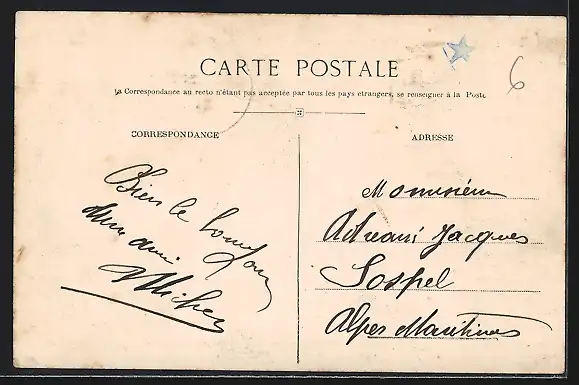 CARTE POSTALE
La Correspondance au recto n'étant pas acceptée par tous les pays étrangers, se renseigner à la Poste
6
CORRESPONDANCE
Bien le bonjour
d'un ami
Michel
ADRESSE
Monusieur
Adreani Jacques
Sospel
Alpes Maritimes